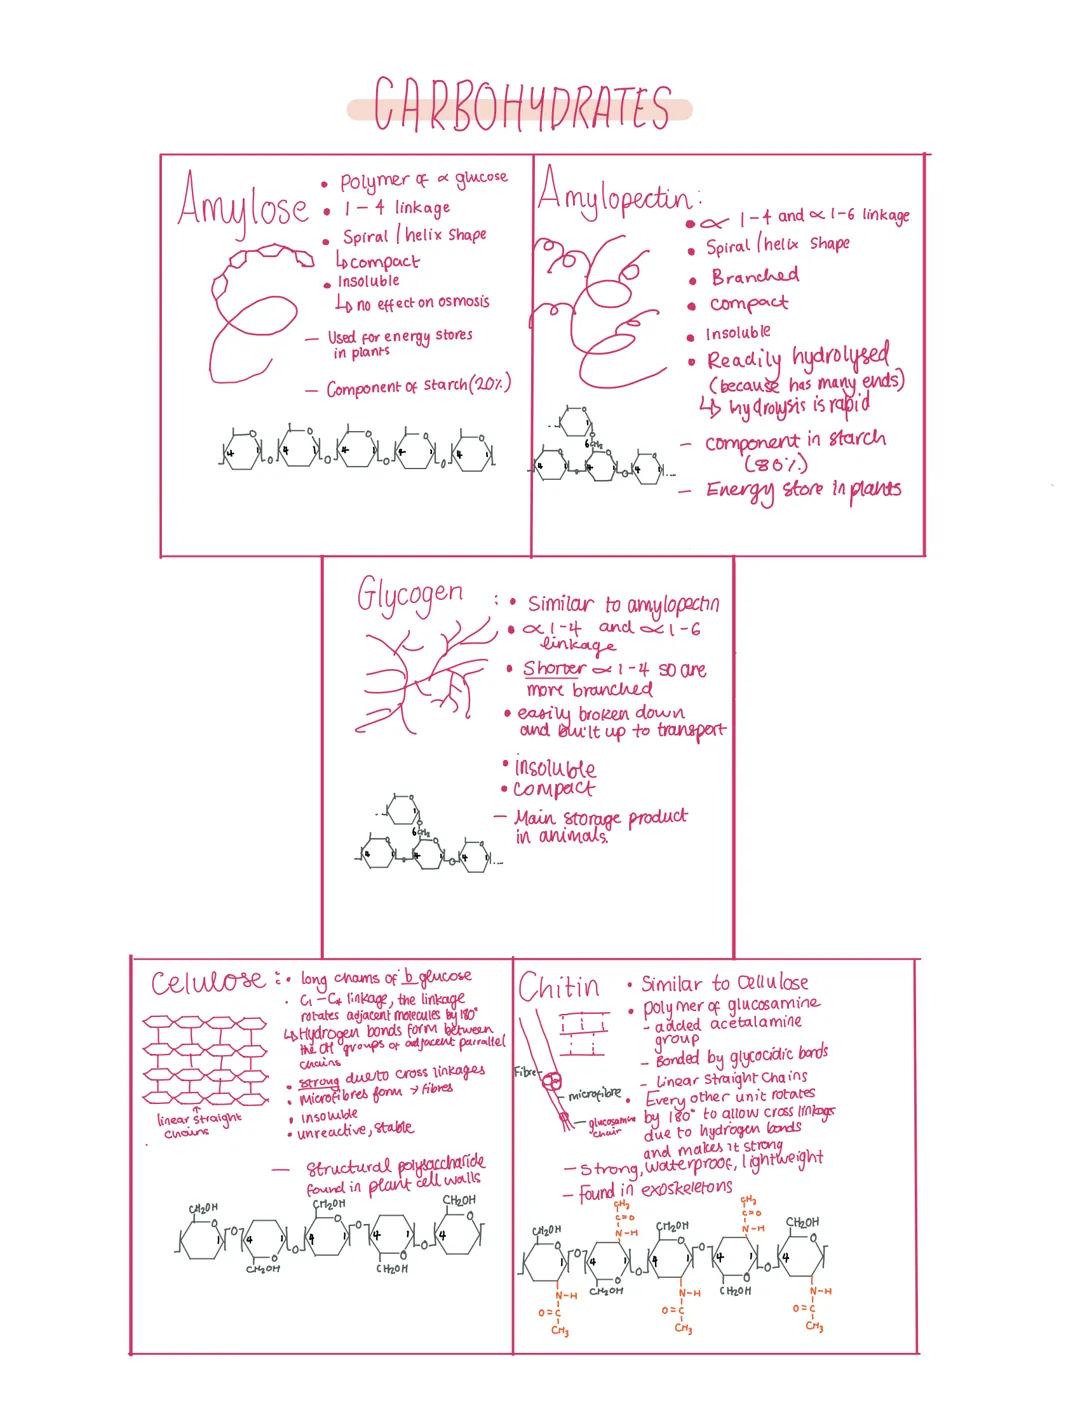 CARBOHYDRATES
Amylose
• Polymer of ∝ glucose
• 1-4 linkage
• Spiral / helix shape
↳ compact
• Insoluble
↳ no effect on osmosis
— Used for energy stores
in plants
— Component of starch (20%)
4 1 O 4 1 O 4 1 O 4 1 O 4 1
Amylopectin:
• ∝ 1-4 and ∝ 1-6 linkage
• Spiral / helix shape
• Branched
• compact
• Insoluble
• Readily hydrolysed
(because has many ends)
↳ hydrolysis is rapid
— component in starch
(80%)
— Energy store in plants
1
O
6 CH2
4 1 O 4 1 O 4 1
Glycogen :
• Similar to amylopectin
• ∝ 1-4 and ∝ 1-6
linkage
• Shorter ∝ 1-4 so are
more branched
• easily broken down
and built up to transport
• insoluble
• compact
— Main storage product
in animals.
1
O
6 CH2
4 1 O 4 1 O 4 1
Celulose :
• long chains of b glucose
• C1-C4 linkage, the linkage
rotates adjacent molecules by 180°
↳ Hydrogen bonds form between
the OH groups of adjacent parrallel
chains
• Strong due to cross linkages
• Microfibres form → Fibres
• insoluble
• unreactive, stable
linear straight
chains
— Structural polysaccharide
found in plant cell walls
CH2OH CH2OH CH2OH
1 O 4 1 O 4 1 O 4 1 O 4
CH2OH CH2OH
Chitin
• Similar to Cellulose
• polymer of glucosamine
- added acetalamine
group
- Bonded by glycocidic bonds
- Linear straight chains
• Every other unit rotates
by 180° to allow cross linkages
due to hydrogen bonds
and makes it strong
Fibre
microfibre
glucosamine
chair
— Strong, waterproof, lightweight
— found in exoskeletons
CH3 CH3
C=O C=O
N-H N-H
CH2OH CH2OH CH2OH
1 O 4 1 O 4 1 O 4 1 O 4
CH2OH CH2OH
N-H N-H N-H
O=C O=C O=C
CH3 CH3 CH3